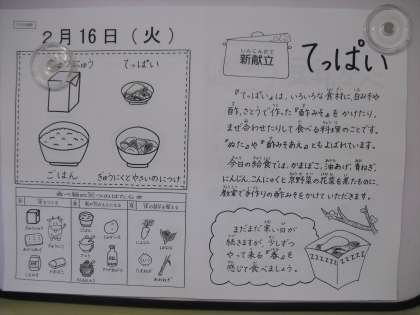 2月16日(火)
ぎゅうにゅう
てっぱい
ごはん
ぎゅうにくとやさいのにつけ
新献立
しんこんだて
てっぱい
『てっぱい』は、いろいろな食材に、白みそや
酢、さとうで作った『酢みそ』をかけたり、
まぜ合わせたりして食べる料理のことです。
『ぬた』や『酢みそあえ』ともよばれています。
今日の給食では、かまぼこ、油あげ、青ねぎ、
にんじん、こんにゃくと京野菜の花菜を煮たものに、
教室で手作りの酢みそをかけていただきます。
まだまだ寒い日が
続きますが、少しずつ
やって来る『春』を
感じて食べましょう。